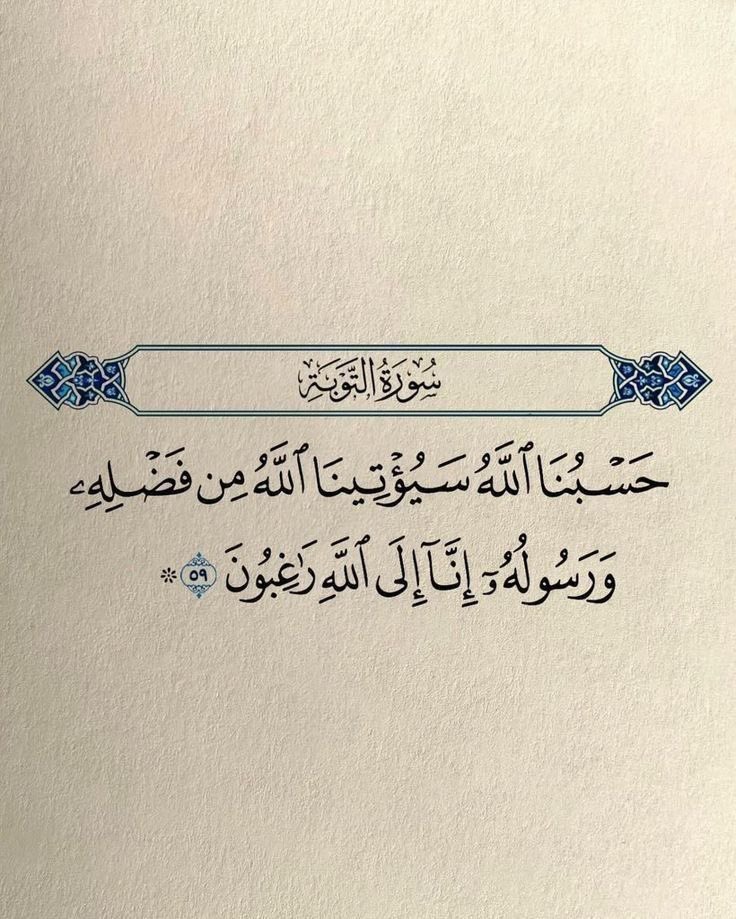 سُورَةُ التَّوْبَةِ
حَسْبُنَا ٱللَّهُ سَيُؤْتِينَا ٱللَّهُ مِن فَضْلِهِۦ
وَرَسُولُهُۥٓ إِنَّآ إِلَى ٱللَّهِ رَٰغِبُونَ ٥٩ ۞